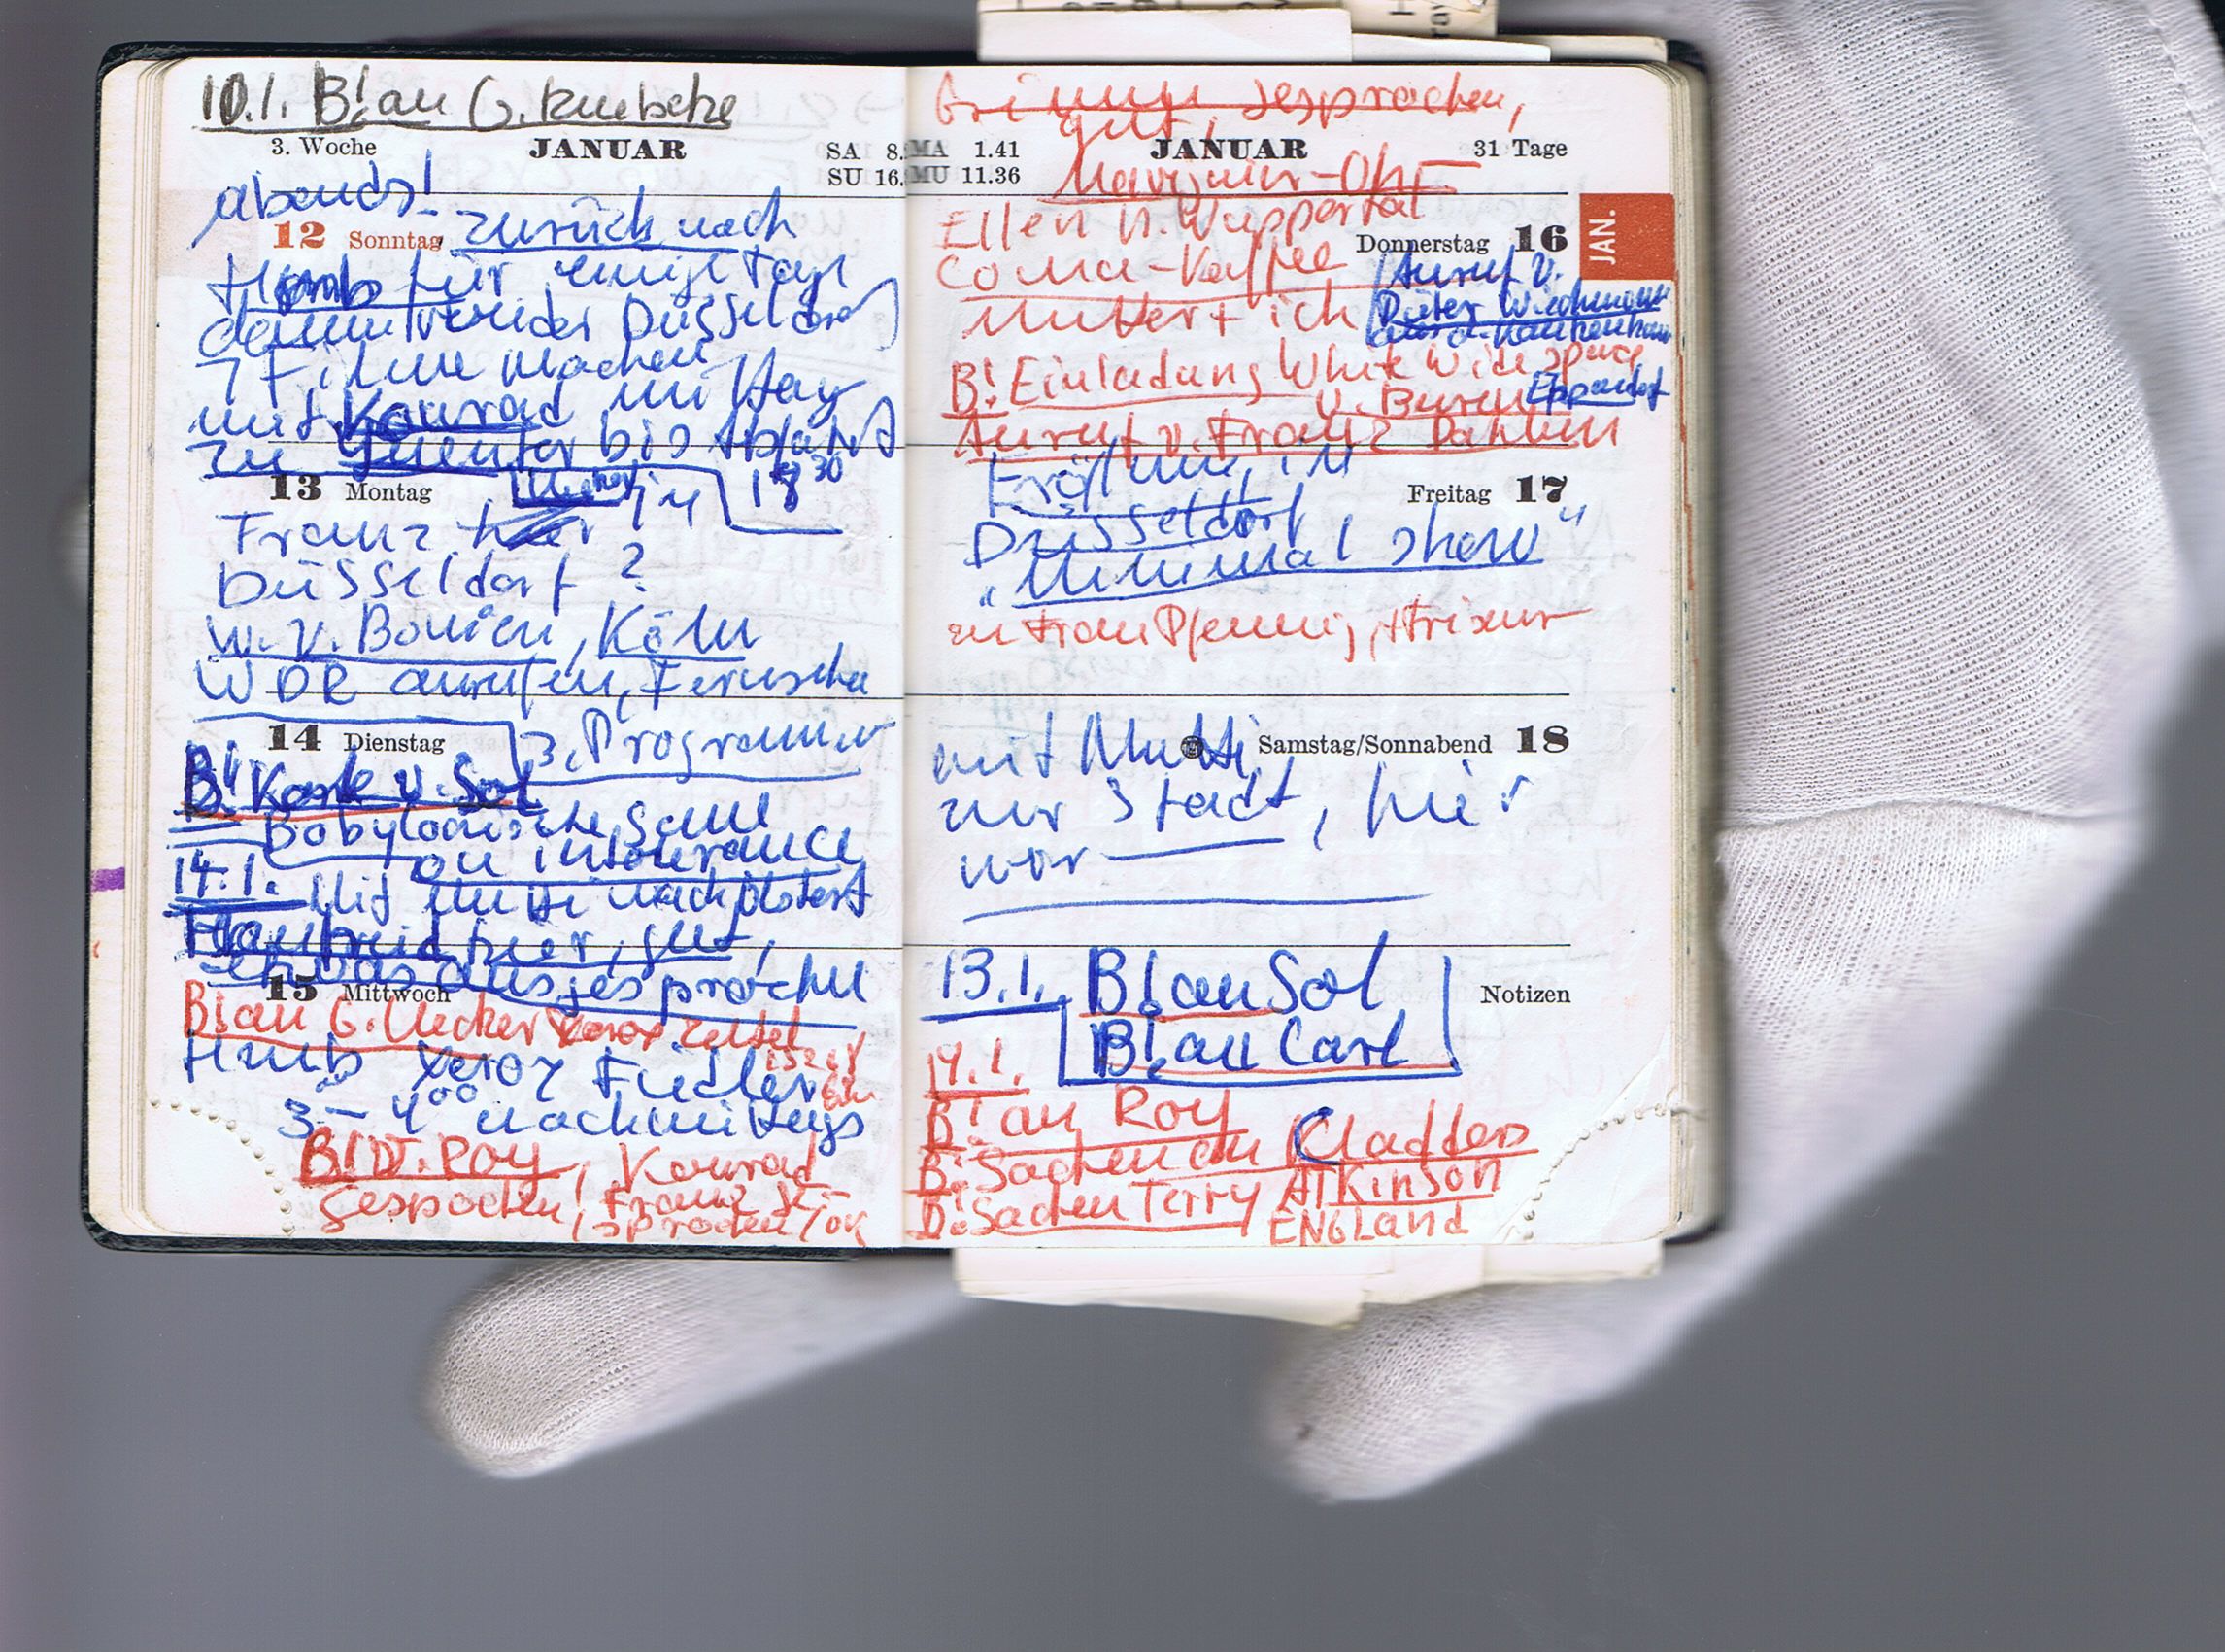 10.1. B! an G.
3. Woche JANUAR SA 8.
SU 16.
abends!
12 Sonntag zurück nach
Hmb für einige Tage
dann wieder Düsseldorf
Filme machen
mit Konrad mit Hay
zu Guenter bis Abfahrt
13 Montag in 18 30
Franz
Düsseldorf ?
W. v. Bonin, Köln
WDR anrufen, Fernsehen
14 Dienstag 3. Programm
B! Karte v. Sol
Babylonische Säule
on intolerance
14.1. Mit Mutti nach
Hanfried hier, gut,
etwas ausgesprochen
15 Mittwoch
B! an G. Uecker Xerox Zettel
Hmb Xerox Fiedler
3 - 4 00 nachmittags
B! D. Roy, Konrad
gespochen, Franz ge-
sprochen / ok
Grimm gesprochen,
gut,
MA 1.41 JANUAR 31 Tage
MU 11.36
Ellen n. Wuppertal
Donnerstag 16
Coma-Kaffee Anruf v.
Mutter + ich Dieter Wiechmann
B! Einladung White Wide Space
v. Buren Eppendorf
Anruf v. Franz Dahlem
JAN.
Eröffnung in
Freitag 17
Düsseldorf
"Minimal show"
zu Frau Pfennig, Friseur
mit Mutti Samstag/Sonnabend 18
zur Stadt, hier
war
13.1. B! an Sol Notizen
B! an Carl
14.1.
B! an Roy
B! Sachen an Cladders
B! Sachen Terry ATKinSON
ENGLand